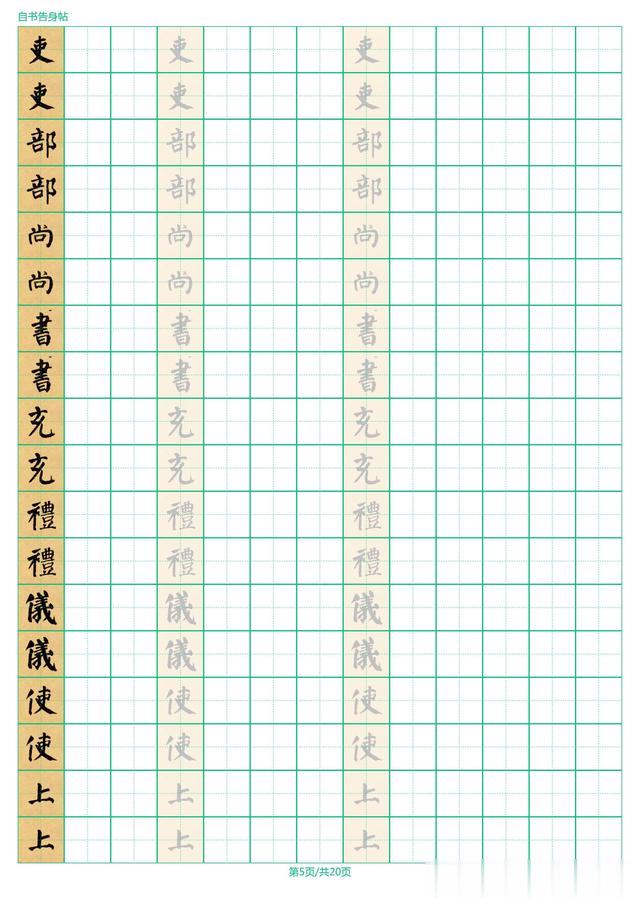 自书告身帖
吏 吏 吏
吏 吏 吏
部 部 部
部 部 部
尚 尚 尚
尚 尚 尚
書 書 書
書 書 書
充 充 充
充 充 充
禮 禮 禮
禮 禮 禮
儀 儀 儀
儀 儀 儀
使 使 使
使 使 使
上 上 上
上 上 上
第5页/共20页